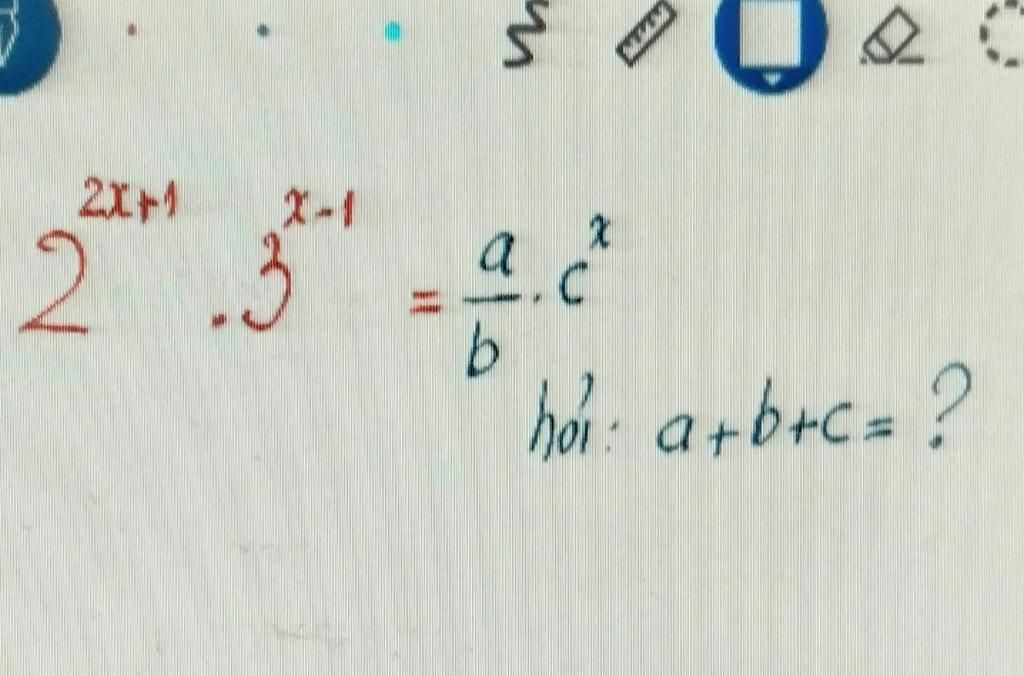 2^{2x+1} . 3^{x-1} = \frac{a}{b} . c^x
hỏi: a+b+c= ?